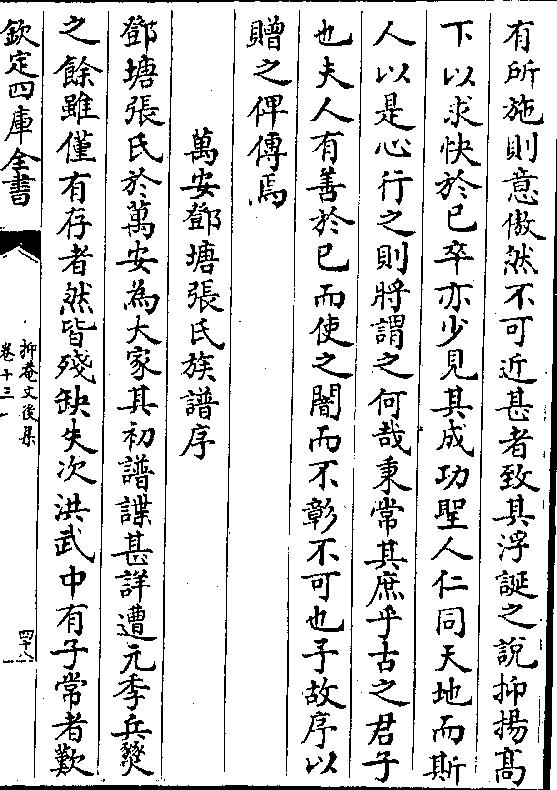 有所施則意傲然不可近甚者致其浮誕之說抑揚髙
下以求快於已卒亦少見其成功聖人仁同天地而斯
人以是心行之則將謂之何哉秉常其庶乎古之君子
也夫人有善於已而使之闇而不彰不可也予故序以
贈之俾傳焉
萬安鄧塘張氏族譜序
鄧塘張氏於萬安為大家其初譜諜甚詳遭元季兵燹
之餘雖僅有存者然皆殘缺失次洪武中有子常者歎
欽定四庫全書
抑菴文後集
卷十三
四十八